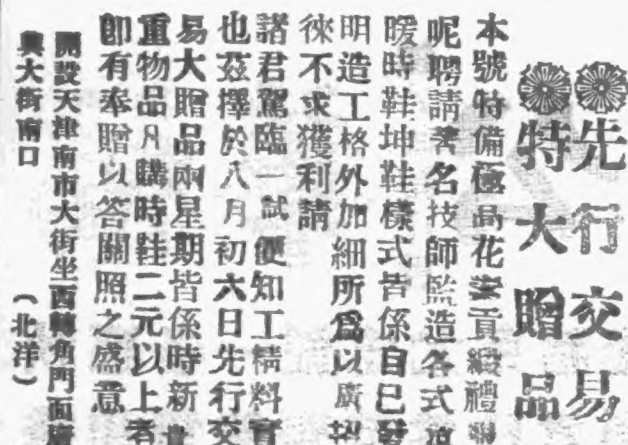 先行交易
特大贈品
本號特備極品花素貢緞禮
呢聘請著名技師監造各式
暖時鞋坤鞋樣式皆係自己發
明造工格外加細所為以廣招
徠不求獲利請
諸君駕臨一試便知工精料實
也茲擇於八月初六日先行交
易大贈品兩星期皆係時新貴
重物品凡購時鞋二元以上者
即有奉贈以答關照之盛意
開設天津南市大街坐西轉角門面廣
興大街南口
（北洋）